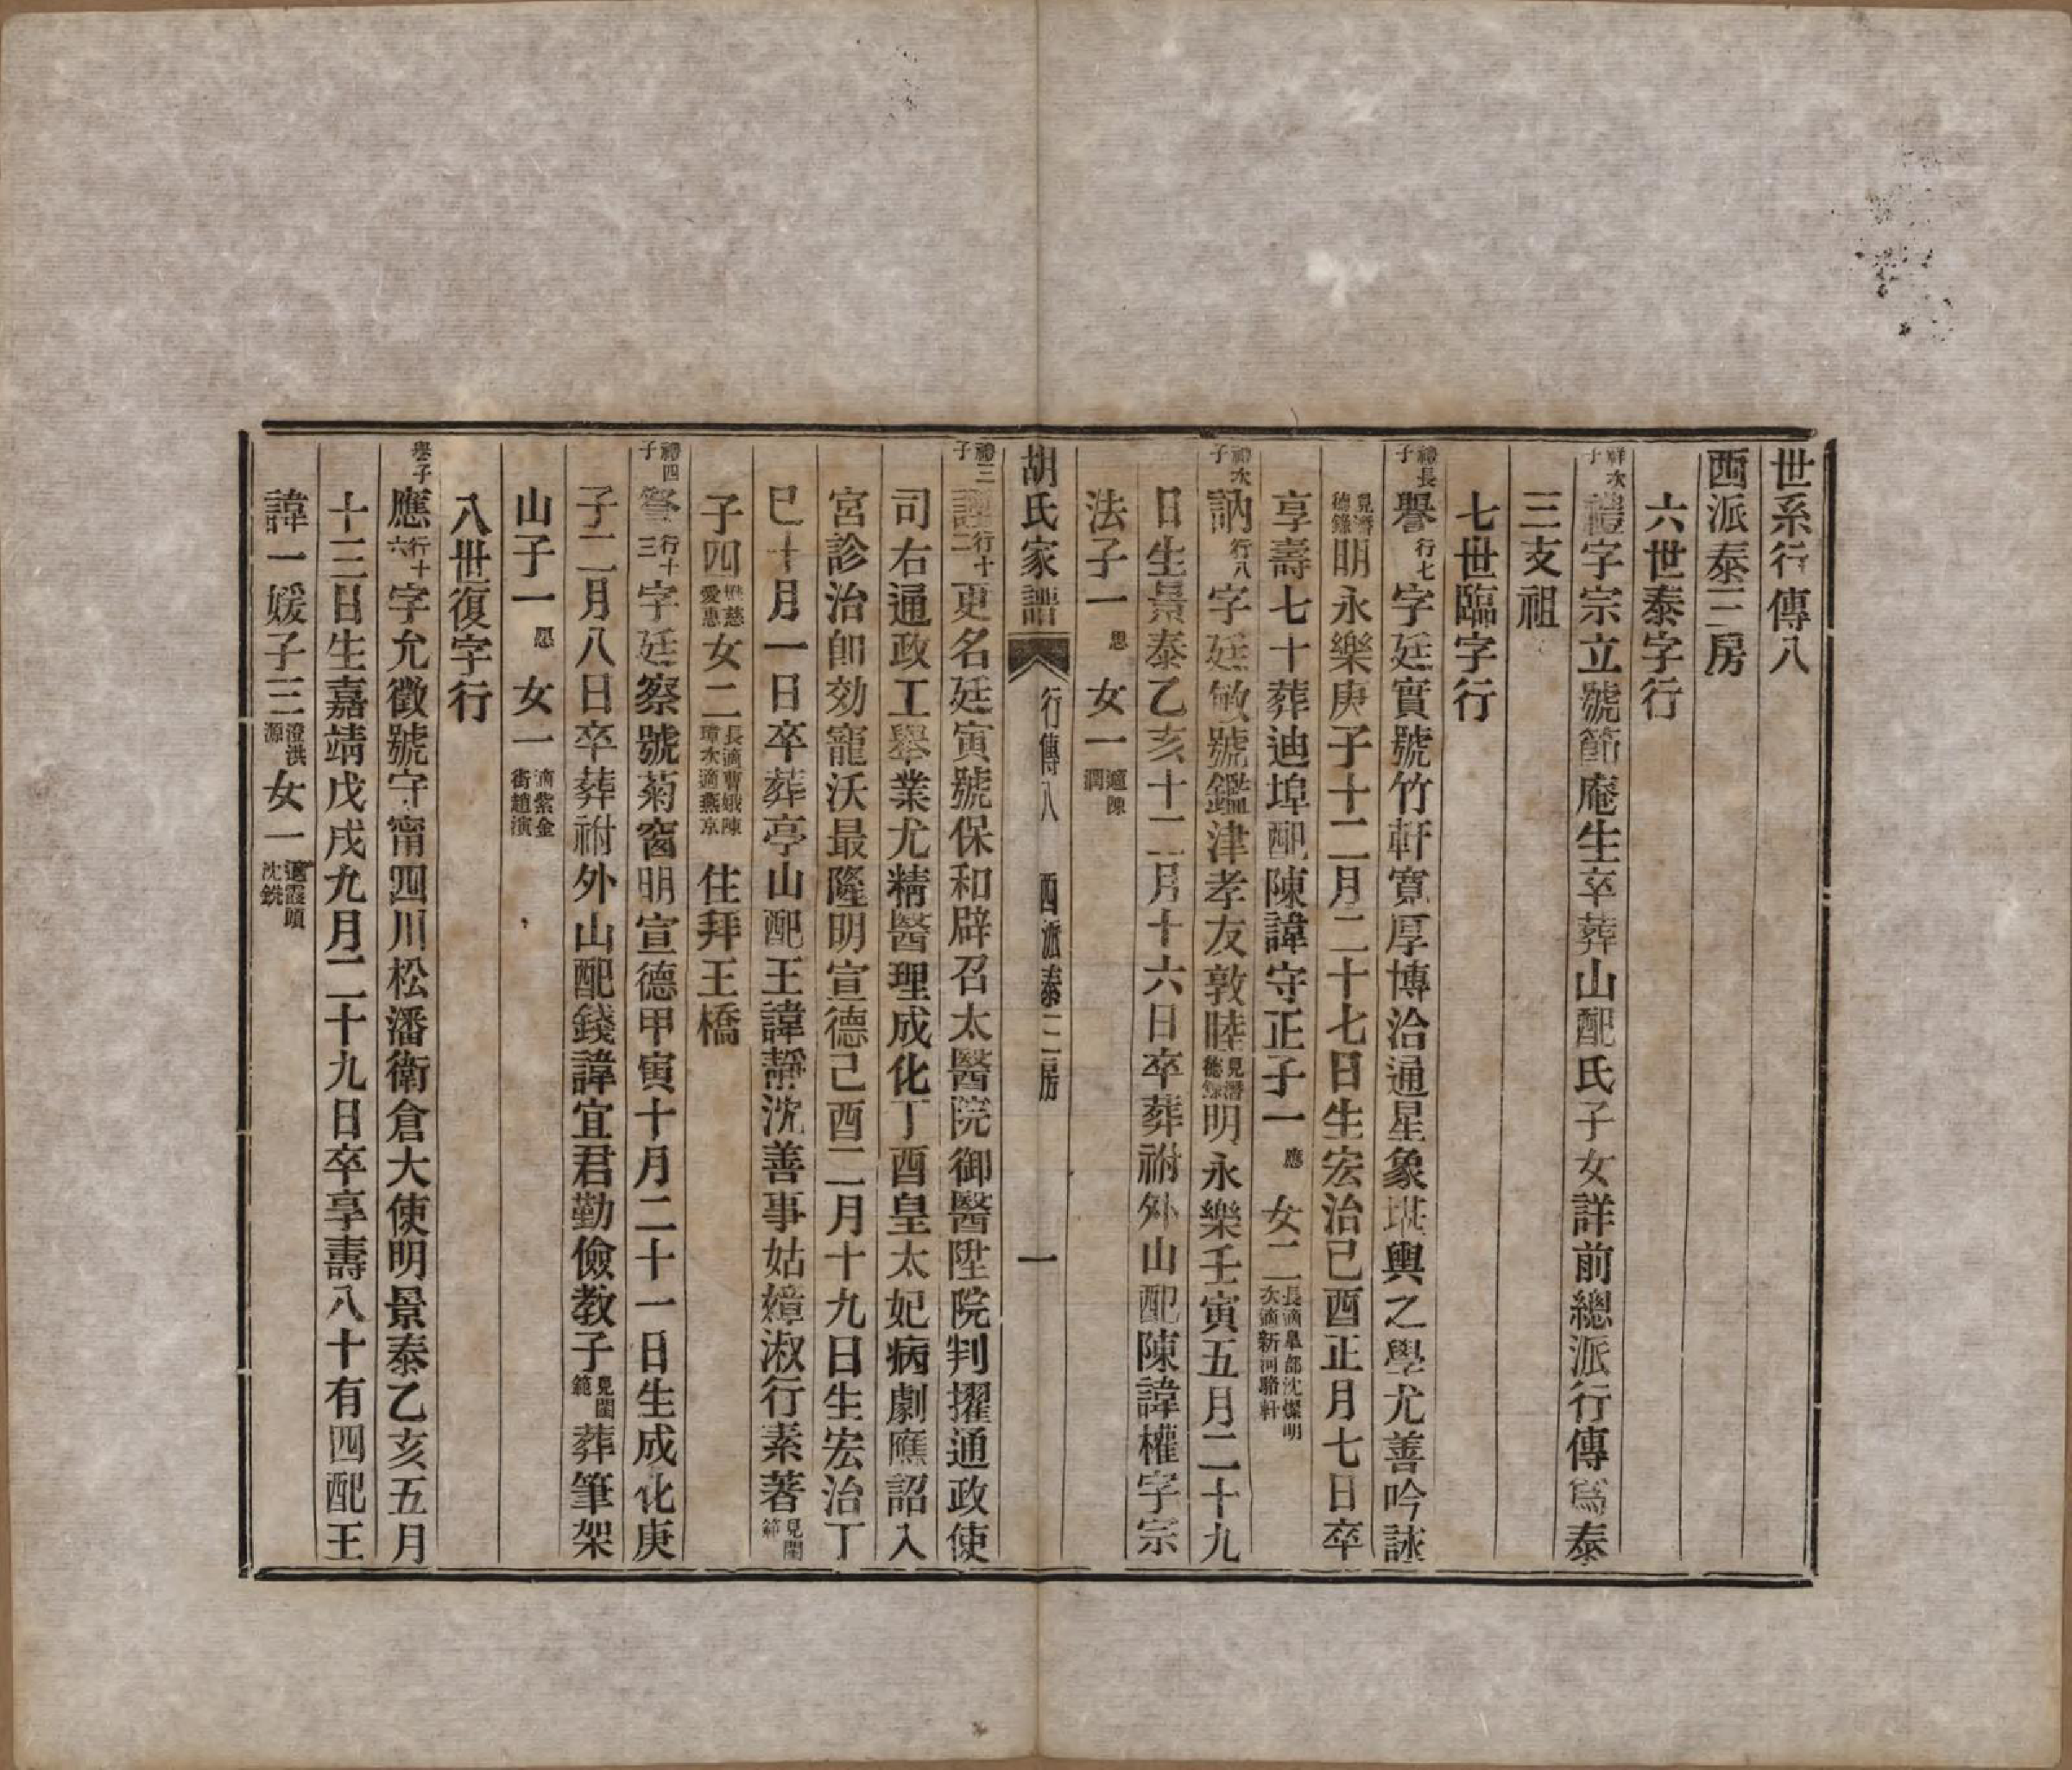 世系行傳八
西派泰三房
六世泰字行
祥次子禮字宗立號節庵生卒葬山配氏子女詳前總派行傳爲泰
三支祖
七世臨字行
禮長子譽行七字廷實號竹軒寬厚博洽通星象堪輿之學尤善吟詠
見潛德錄明永樂庚子十二月二十七日生宏治己酉正月七日卒
享壽七十葬迪埠配陳諱守正子一應女二長適皐部沈燦明次適新河駱軒
禮次子訥行八字廷敏號鑑津孝友敦睦見潛德錄明永樂壬寅五月二十九
日生景泰乙亥十二月十六日卒葬祔外山配陳諱權字宗
法子一思女一適陳潤
胡氏家譜 行傳八 西派泰三房 一
禮三子謹行十二更名廷寅號保和辟召太醫院御醫陞院判擢通政使
司右通政工舉業尤精醫理成化丁酉皇太妃病劇應詔入
宮診治卽効寵沃最隆明宣德己酉二月十九日生宏治丁
巳十月一日卒葬亭山配王諱靜沈善事姑嫜淑行素著見閨範
子四懋慈愛惠女二長適曹娥陳璋次適燕京住拜王橋
禮四子詧行十三字廷察號菊窗明宣德甲寅十月二十一日生成化庚
子二月八日卒葬祔外山配錢諱宜君勤儉教子見閨範葬筆架
山子一愿女一適紫金街趙演
八世復字行
譽子應行十六字允徵號守甯四川松潘衛倉大使明景泰乙亥五月
十三日生嘉靖戊戌九月二十九日卒享壽八十有四配王
諱一媛子三澄洪源女一適霞頭沈銑